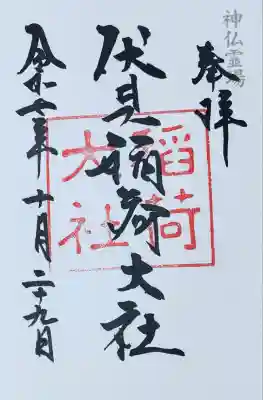 神仏霊場
奉拝
伏見稲荷大社
稲荷
大社
令和七年 十月 二十九日